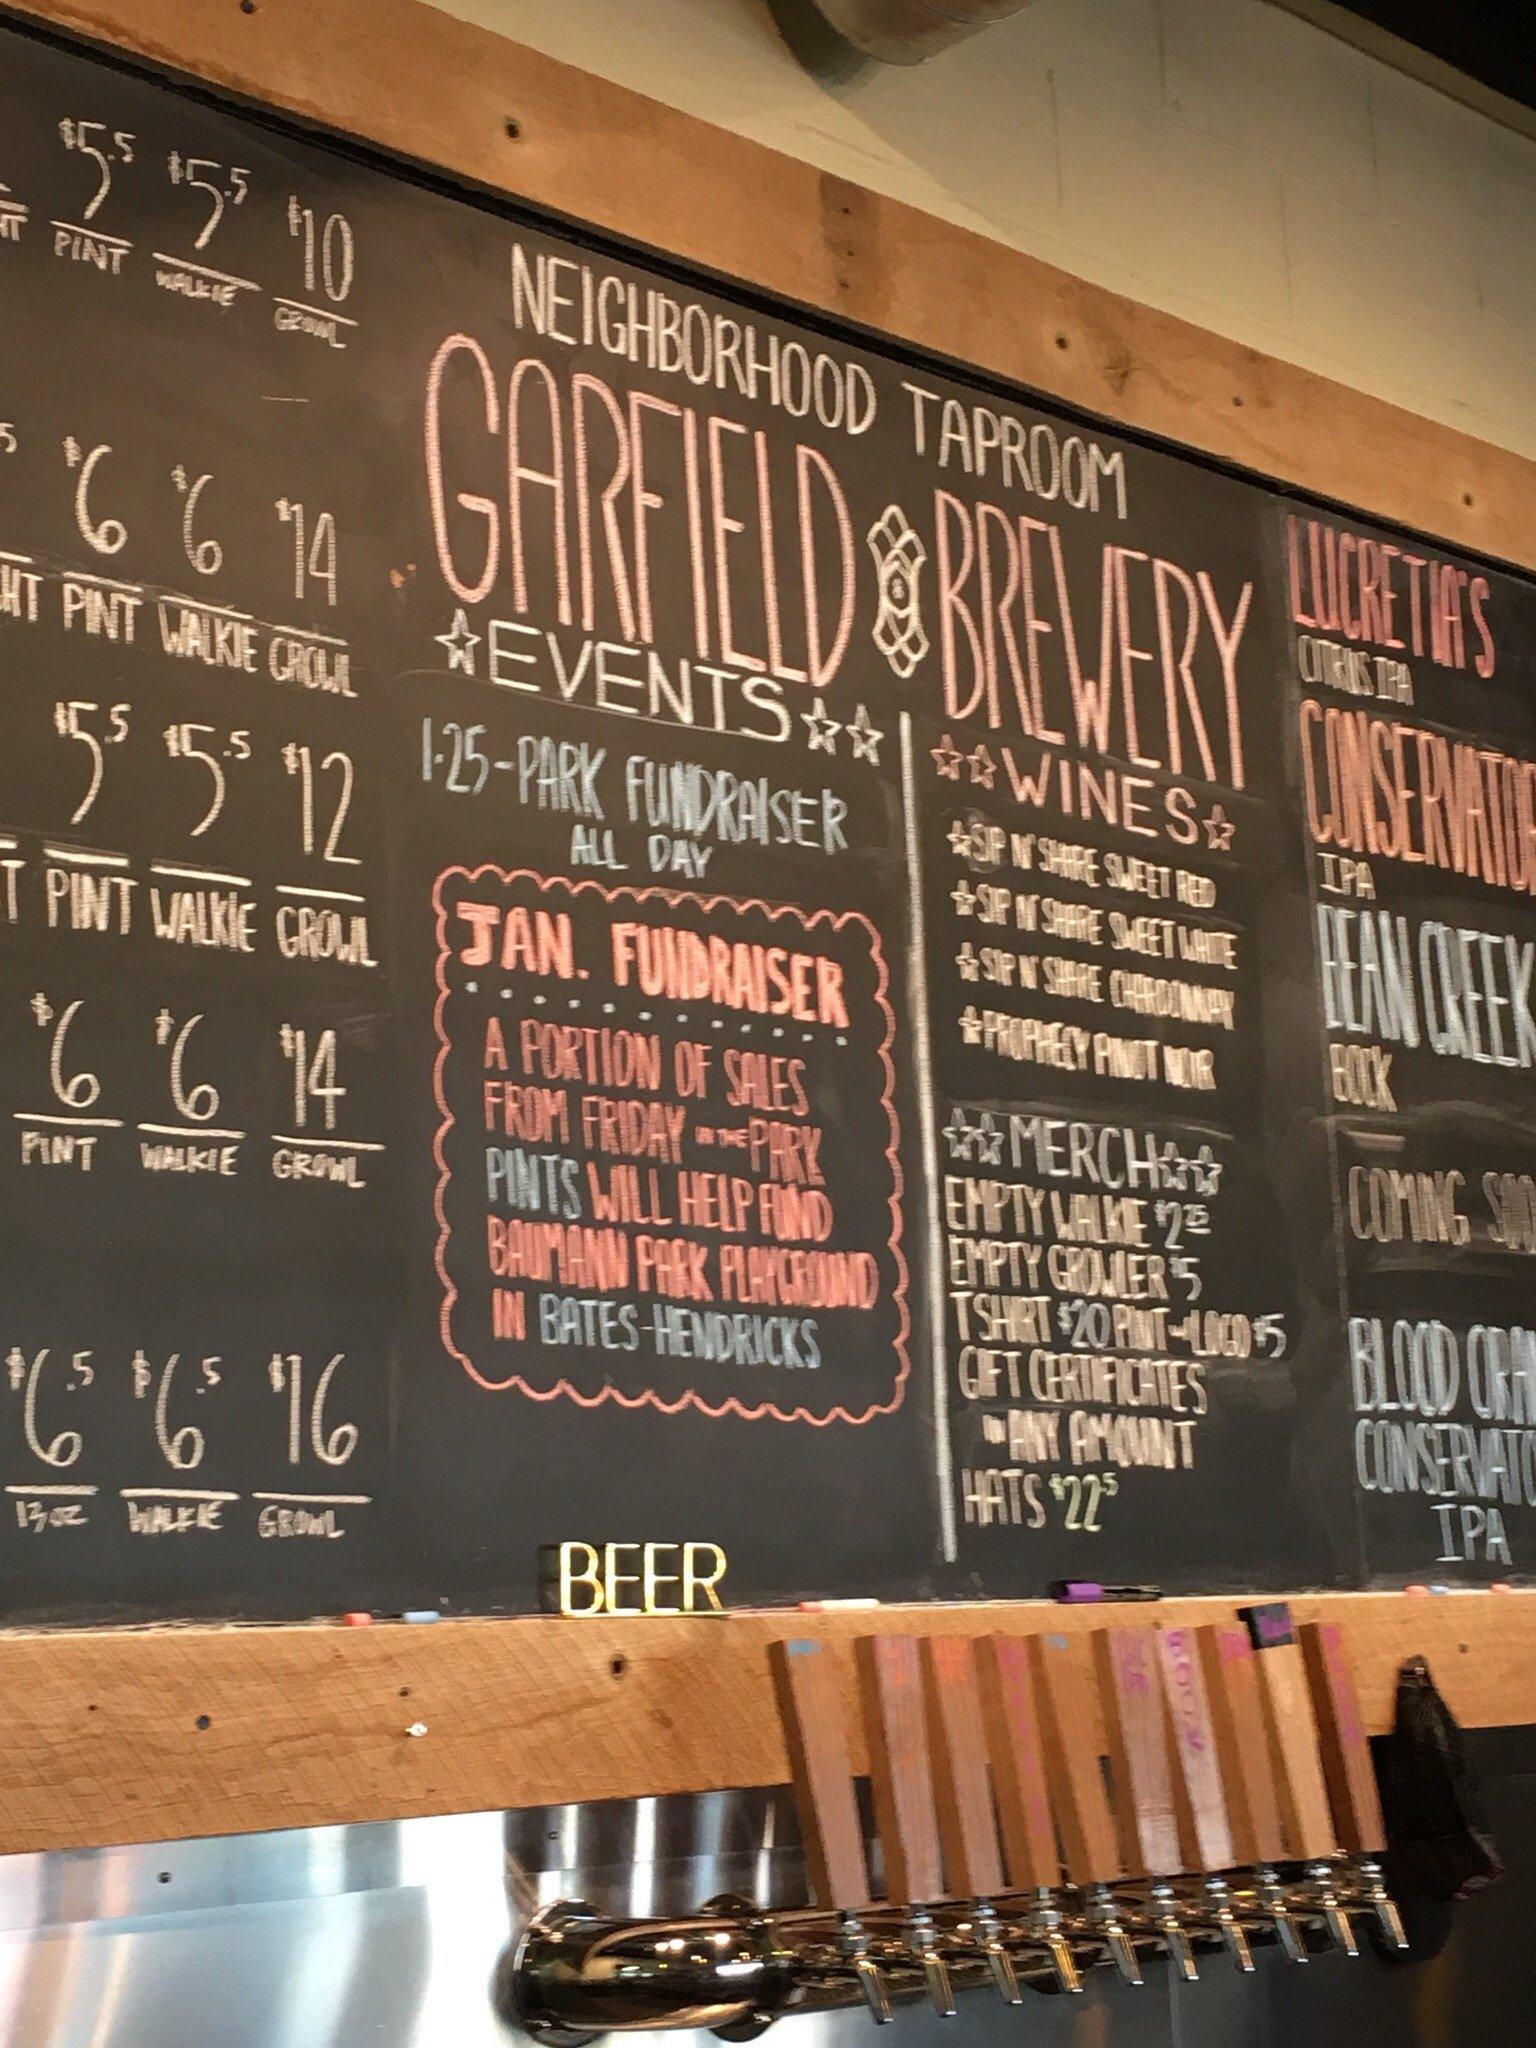 $5.5 $5.5 $10
PINT WALKIE GROWL
$6 $6 $14
PINT WALKIE GROWL
$5.5 $5.5 $12
PINT WALKIE GROWL
$6 $6 $14
PINT WALKIE GROWL
$6.5 $6.5 $16
13 OZ WALKIE GROWL
NEIGHBORHOOD TAPROOM
GARFIELD BREWERY
EVENTS
1-25-PARK FUNDRAISER
ALL DAY
JAN. FUNDRAISER
A PORTION OF SALES
FROM FRIDAY IN THE PARK
PINTS WILL HELP FUND
BAUMANN PARK PLAYGROUND
IN BATES-HENDRICKS
WINES
SIP N' SHARE SWEET RED
SIP N' SHARE SWEET WHITE
SIP N' SHARE CHARDONNAY
PROPHECY PINOT NOIR
MERCH
EMPTY WALKIE $2.25
EMPTY GROWLER $5
T SHIRT $20 PINT-LOGO $5
GIFT CERTIFICATES
IN ANY AMOUNT
HATS $22.5
LUCRETIA'S
CITRUS IPA
CONSERVATO
IPA
BEAN CREEK
BOCK
COMING SOO
BLOOD ORA
CONSERVATO
IPA
BEER